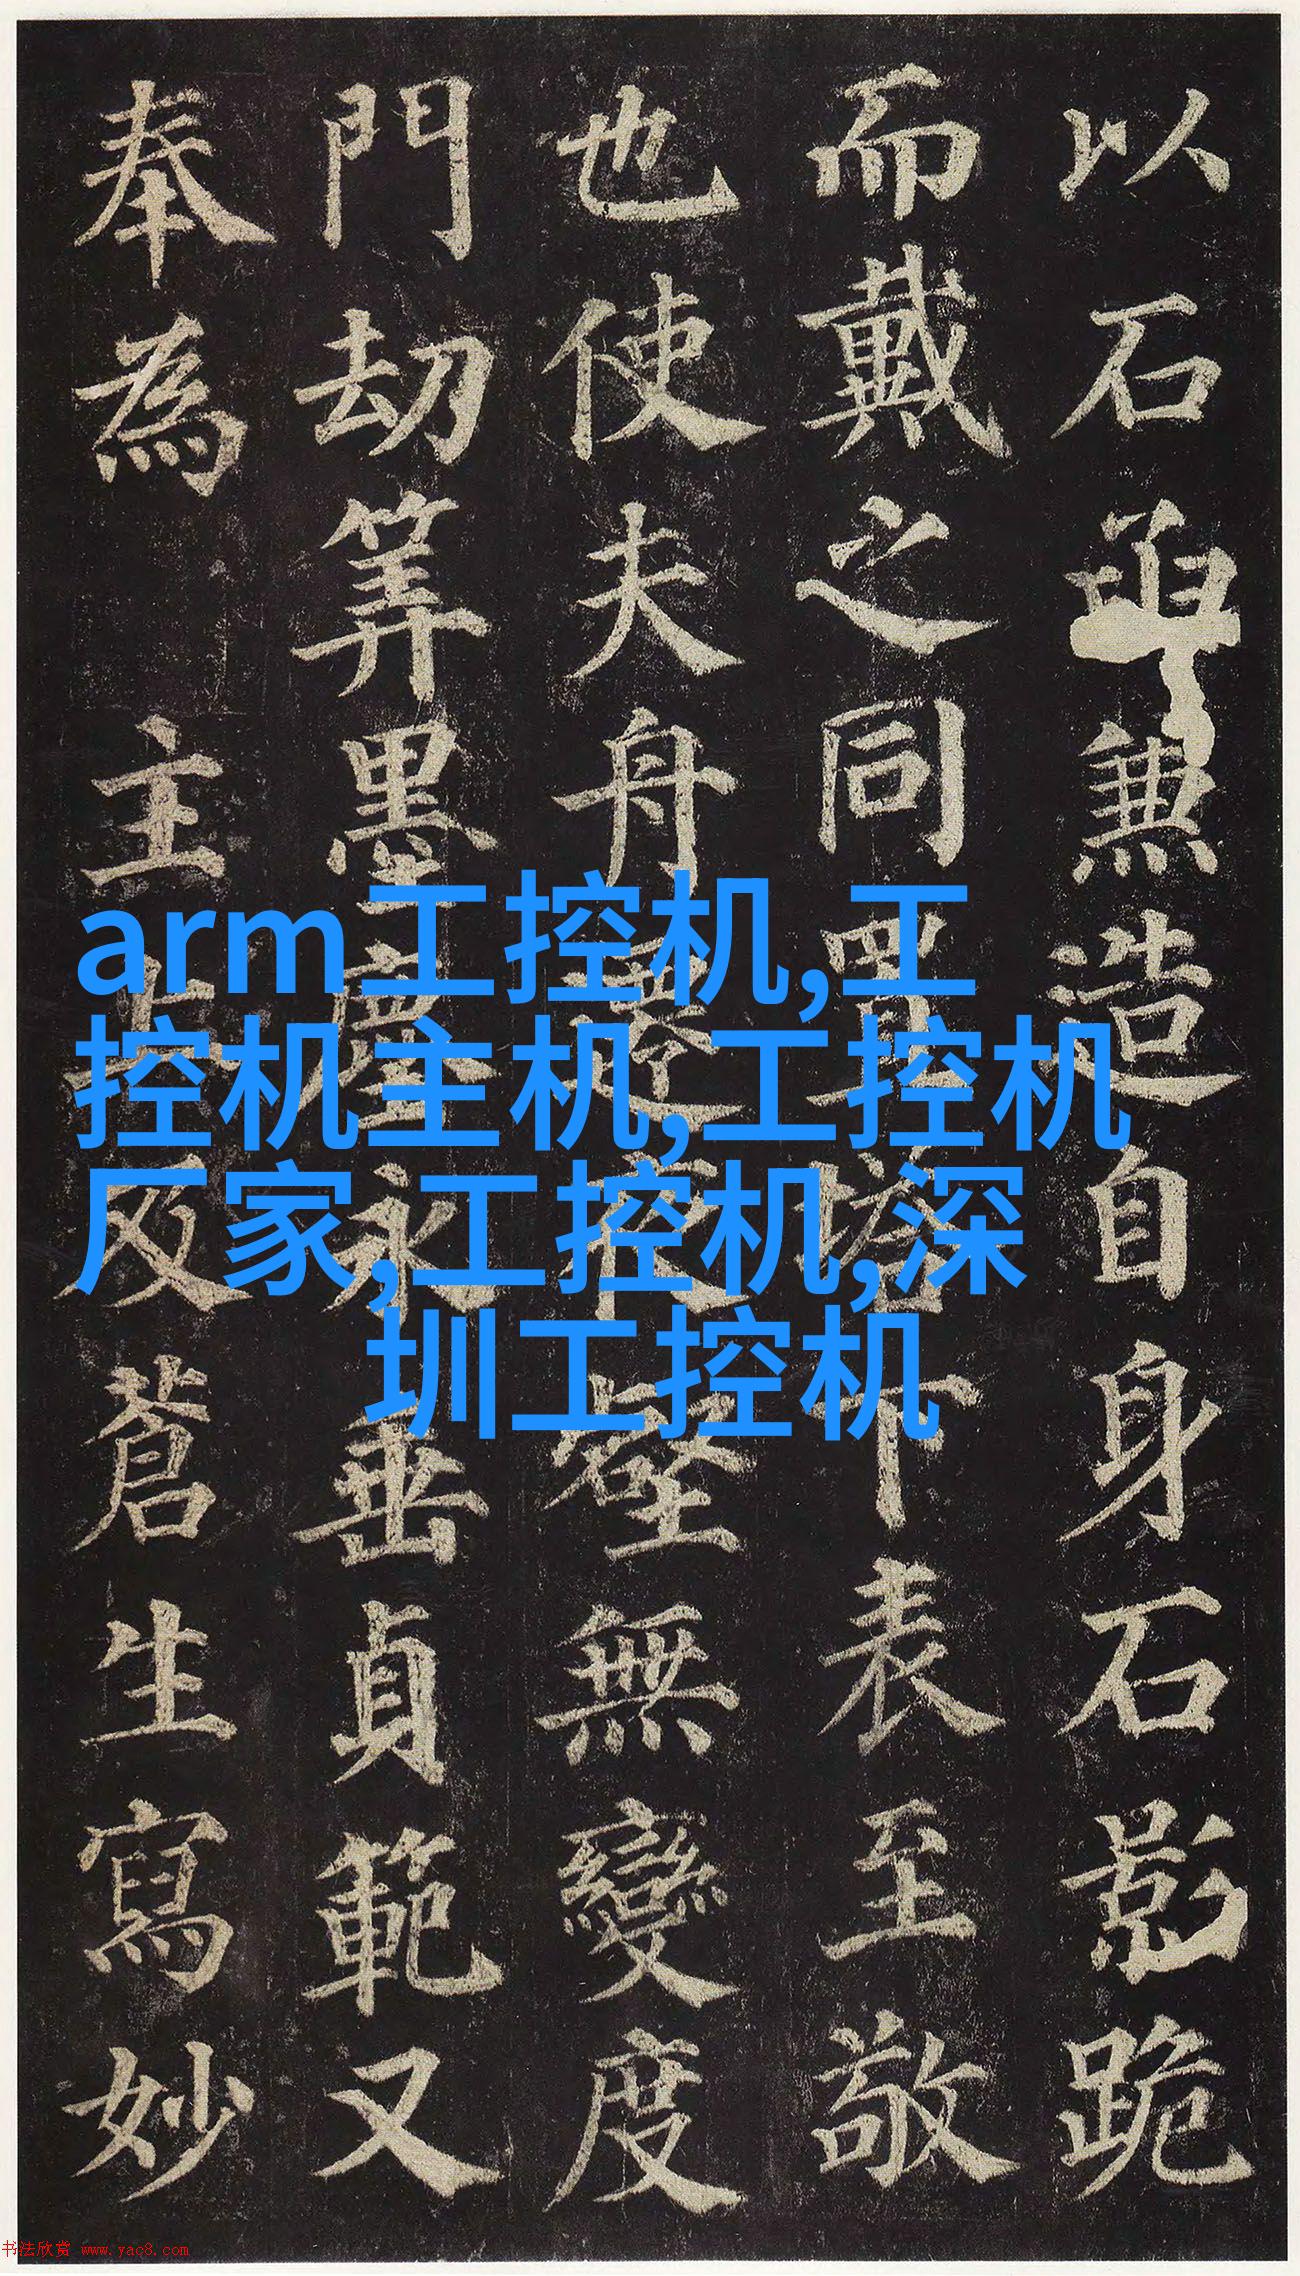 以石函兼造自身石影跪
而戴之同置塔下表至敬
也使夫舟遷夜壑無變度
門劫筭墨塵永垂貞範又
奉為主上及蒼生寫妙
arm工控机,工
控机主机,工控机
厂家,工控机,深
圳工控机
书法欣赏 www.yac8.com